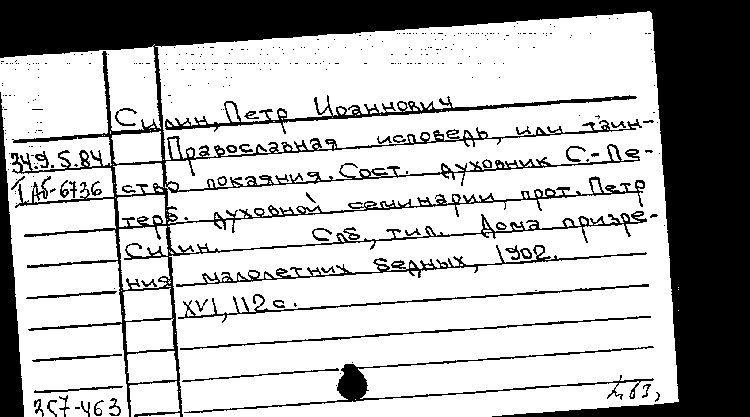 Силин, Петр Иоаннович
34.9.5.84. Православная исповедь, или таин-
I Аб-6736 ство покаяния. Сост. духовник С.-Пе-
терб. духовной семинарии, прот. Петр
Силин. Спб., тип. Дома призре-
ния малолетних бедных, 1902.
XVI, 112 с.
357-463